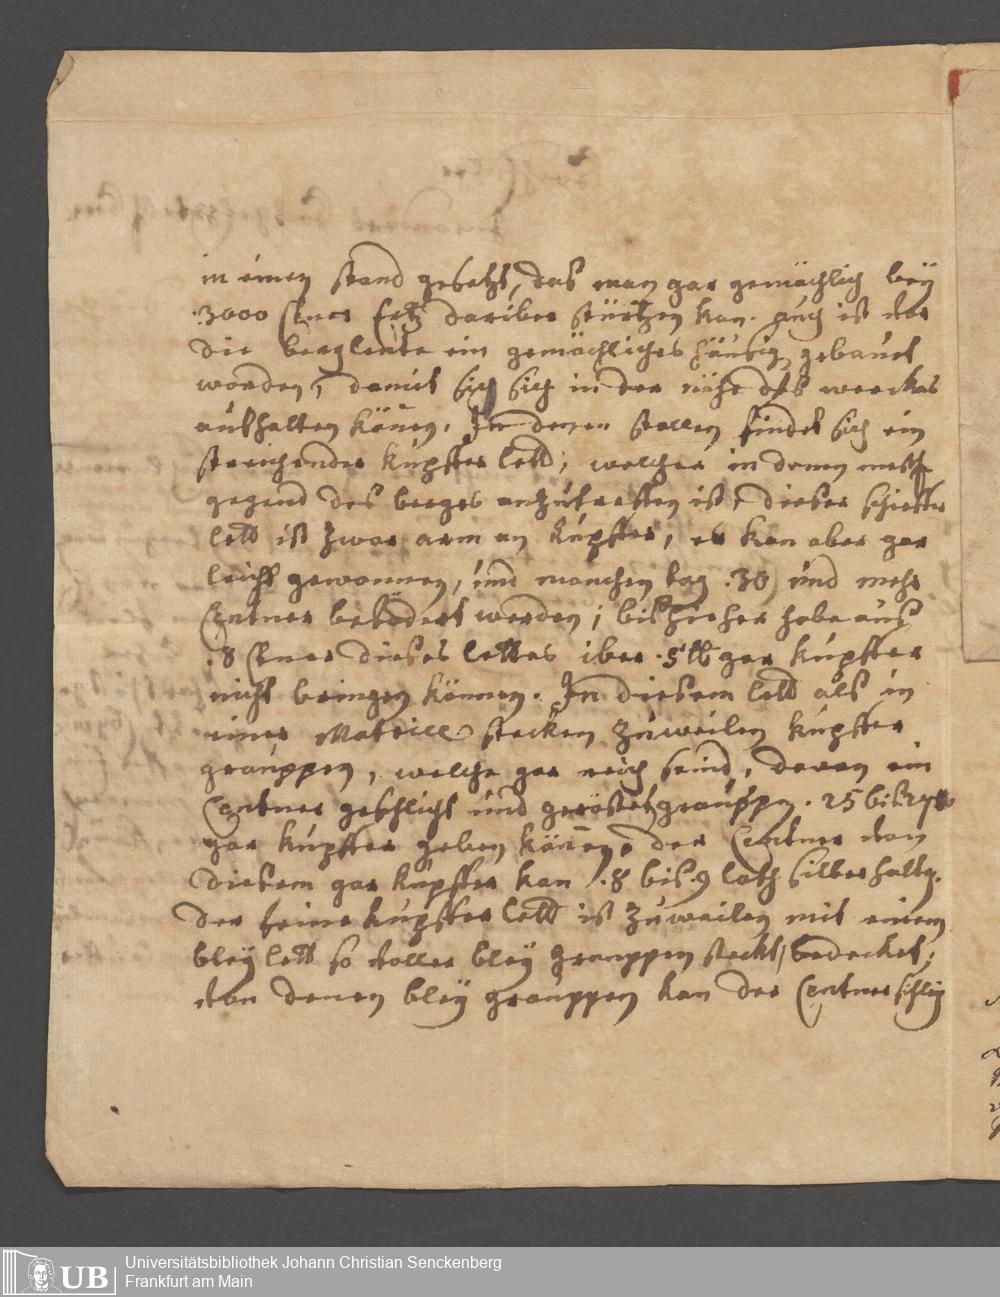 in einen stand gesetzt, das man gar gemächlich beÿ
.3000 Ctner Ertz dariber stürtzen kan. auch ist vor
die bergleute ein gemächliches häusig gebauet
worden, damit sich in der nähe des werckes
aufhalten könen. In denen stollen findet sich ein
streichender kupffer lett, welcher in denen
gegend des berges anzutreffen ist, dieser schieffer
lett ist zwar arm an kupffer, er kan aber gar
leicht gewonnen, und manchen tag .30 und mehr
Centner befödert werden; bishieher habe aus
.8 Ctner dieses lettes iber .5 lb gar kupffer
nicht bringen können. In diesem lett als in
einer Matrice stecken zuweilen kupffer
graupen, welche gar reich seind, deren ein
Centner geschlicht und gerösteter graupen .25 bis
gar kupffer geben könen, der Centner von
diesem gar kupffer kan .8 bis .9 loth silber halten.
der feine kupffer lett ist zuweilen mit einem
bleÿ lett so voller bleÿ graupen steckt, bedecket;
von denen bleÿ graupen kan der Centner schlig
Universitätsbibliothek Johann Christian Senckenberg
Frankfurt am Main
UB